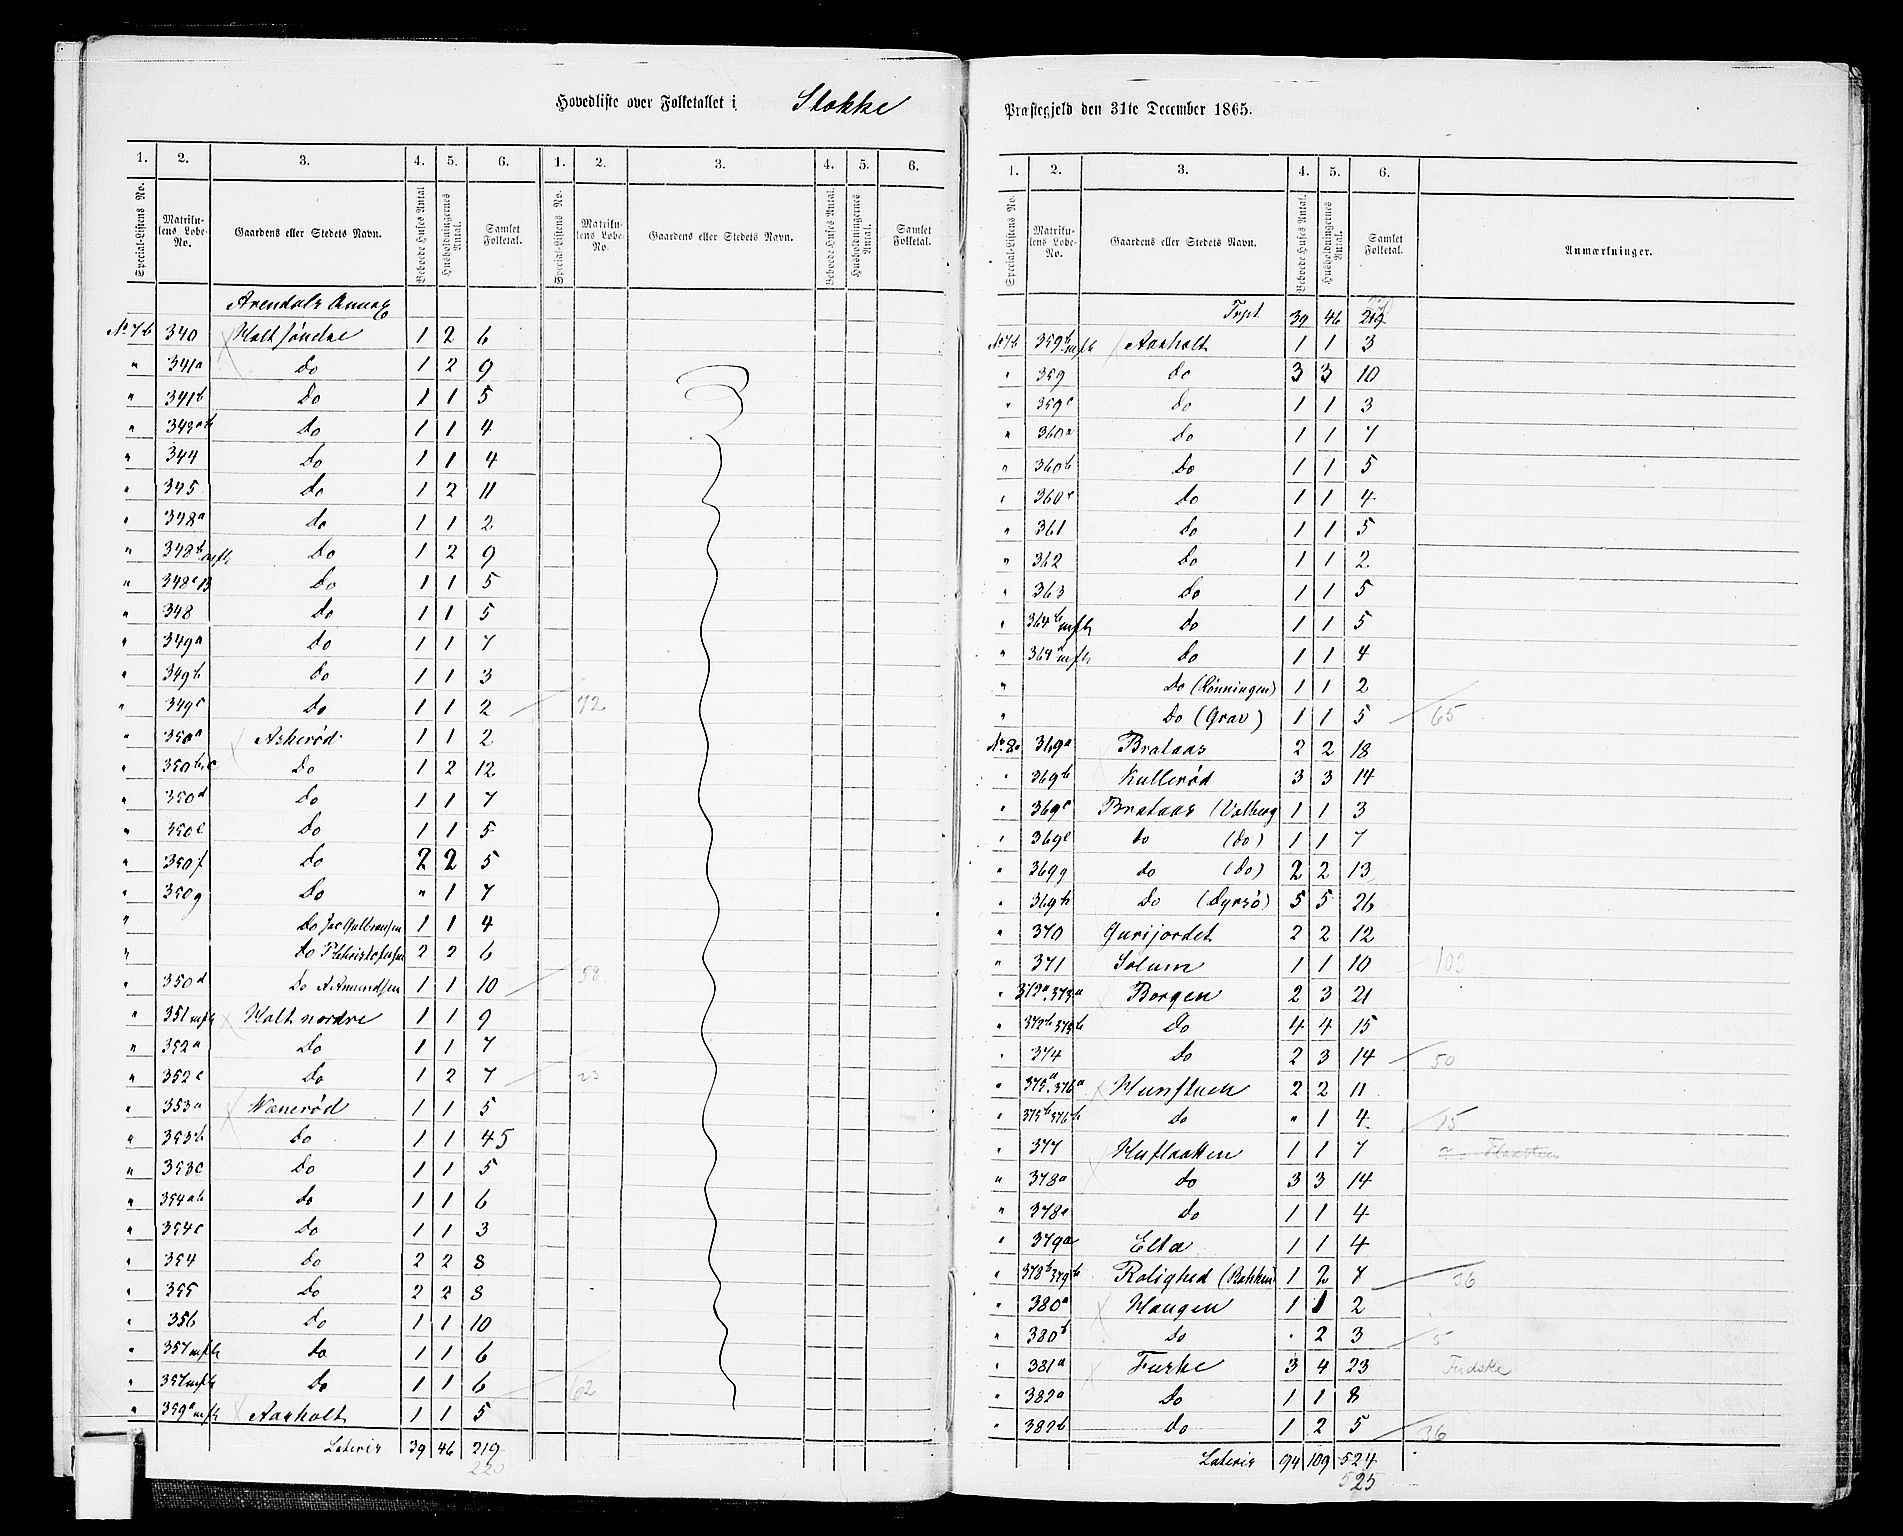 Hovedliste over Folketallet i Stokke
1. 2. 3. 4. 5. 6. 1. 2. 3. 4. 5. 6.
Special-Listens No. Matrikulens Løbe-No. Gaardens eller Stedets Navn. Beboede Huses Antal. Husholdningernes Antal. Samlet Folketal. Special-Listens No. Matrikulens Løbe-No. Gaardens eller Stedets Navn. Beboede Huses Antal. Husholdningernes Antal. Samlet Folketal.
Arendals Annex
No 7b 340 Holt søndre 1 2 6
" 341a Do 1 2 9
" 341b Do 1 1 5
" 343ab Do 1 1 4
" 344 Do 1 1 4
" 345 Do 1 2 11
" 348a Do 1 1 2
" 348b mfl Do 1 2 9
" 348c B Do 1 1 5
" 348 Do 1 1 5
" 349a Do 1 1 7
" 349b Do 1 1 3
" 349c Do 1 1 2 72
" 350a Askerød 1 1 2
" 350b.c Do 1 2 12
" 350d Do 1 1 7
" 350e Do 1 1 5
" 350f Do 2 2 5
" 350g Do " 1 7
" Do Jac Gulbransen 1 1 4
" Do 2 2 6
" 350d Do A Amundsen 1 1 10 58
" 351 mfl Holt nordre 1 1 9
" 352a Do 1 1 7
" 352c Do 1 2 7 23
" 353a Wænerød 1 1 5
" 353b Do 1 1 45
" 353c Do 1 1 5
" 354ab Do 1 1 6
" 354c Do 1 1 3
" 354 Do 2 2 8
" 355 Do 2 2 8
" 356 Do 1 1 10
" 357 mfl Do 1 1 6
" 357 mfl Do 1 1 6 62
" 359a mfl Aarholt 1 1 5
Lateris 39 46 219
220
Præstegjeld den 31te December 1865.
1. 2. 3. 4. 5. 6.
Special-Listens No. Matrikulens Løbe-No. Gaardens eller Stedets Navn. Beboede Huses Antal. Husholdningernes Antal. Samlet Folketal. Anmærkninger.
Trpt 39 46 219
No 7b 359b mfl Aarholt 1 1 3
" 359 Do 3 3 10
" 359c Do 1 1 3
" 360a Do 1 1 7
" 360b Do 1 1 5
" 360c Do 1 1 4
" 361 Do 1 1 5
" 362 Do 1 1 2
" 363 Do 1 1 5
" 364b mfl Do 1 1 5
" 364d mfl Do 1 1 4
" Do (Rønningen) 1 1 2
" Do (Grav) 1 1 5 65
No 8a 369a Brataas 2 2 18
" 369b Kullerød 3 3 14
" 369c Brataas (Valberg 1 1 3
" 369e do (do) 1 1 7
" 369g do (do) 2 2 13
" 369h Do (Dyrsø) 5 5 26
" 370 Gurijordet 2 2 12
" 371 Solum 1 1 10 103
" 372a.373a Borgen 2 3 21
" 372b.373b Do 4 4 15
" 374 Do 2 3 14 50
" 375a.376a Hunstuch 2 2 11
" 375b.376b do " 1 4 15
" 377 Huflaatten 1 1 7 Flaatten
" 378a do 3 3 14
" 378a do 1 1 4
" 379a Elta 1 1 4
" 378b.379b Rolighed (Bakken) 1 2 7 36
" 380a Haugen 1 1 2
" 380b Do . 2 3 5
" 381a Furke 3 4 23 Fudske
" 382a Do 1 1 8
" 382b Do 1 2 5 36
Lateris 94 109 524
525